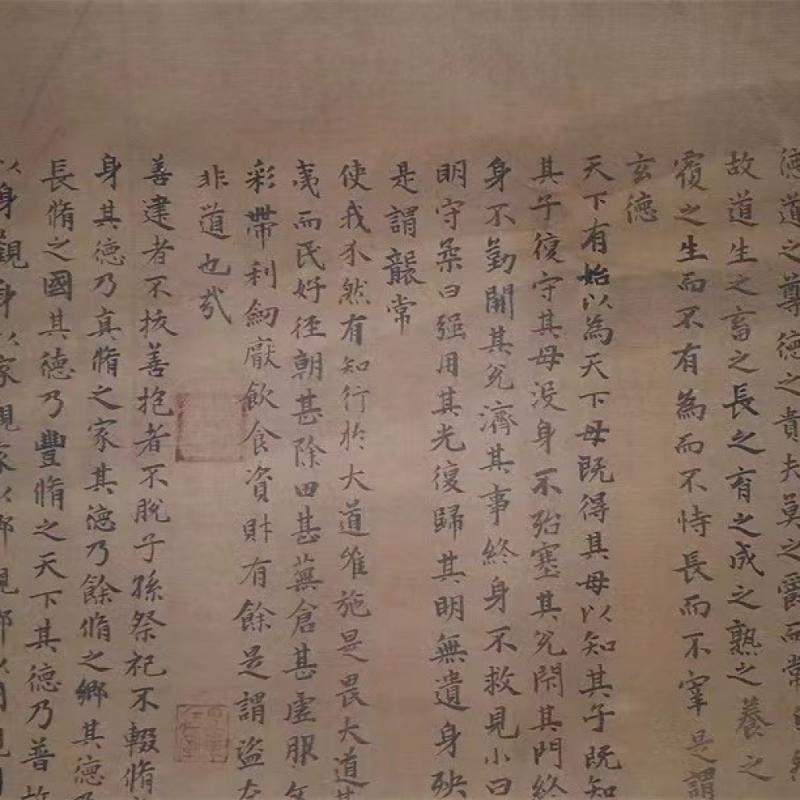 德道之尊德之貴夫莫之爵而常自然
故道生之畜之長之育之成之熟之養之
覆之生而不有為而不恃長而不宰是謂
玄德
天下有始以為天下母既得其母以知其子既知
其子復守其母没身不殆塞其兌閇其門終
身不勤開其兌濟其事終身不救見小曰
明守柔曰强用其光復歸其明無遺身殃
是謂襲常
使我介然有知行於大道唯施是畏大道甚
夷而民好徑朝甚除田甚蕪倉甚虛服文
彩帶利劒厭飲食資財有餘是謂盜夸
非道也哉
善建者不拔善抱者不脫子孫祭祀不輟脩
身其德乃真脩之家其德乃餘脩之鄉其德乃
長脩之國其德乃豐脩之天下其德乃普故
以身觀身以家觀家以鄉觀鄉以國觀國